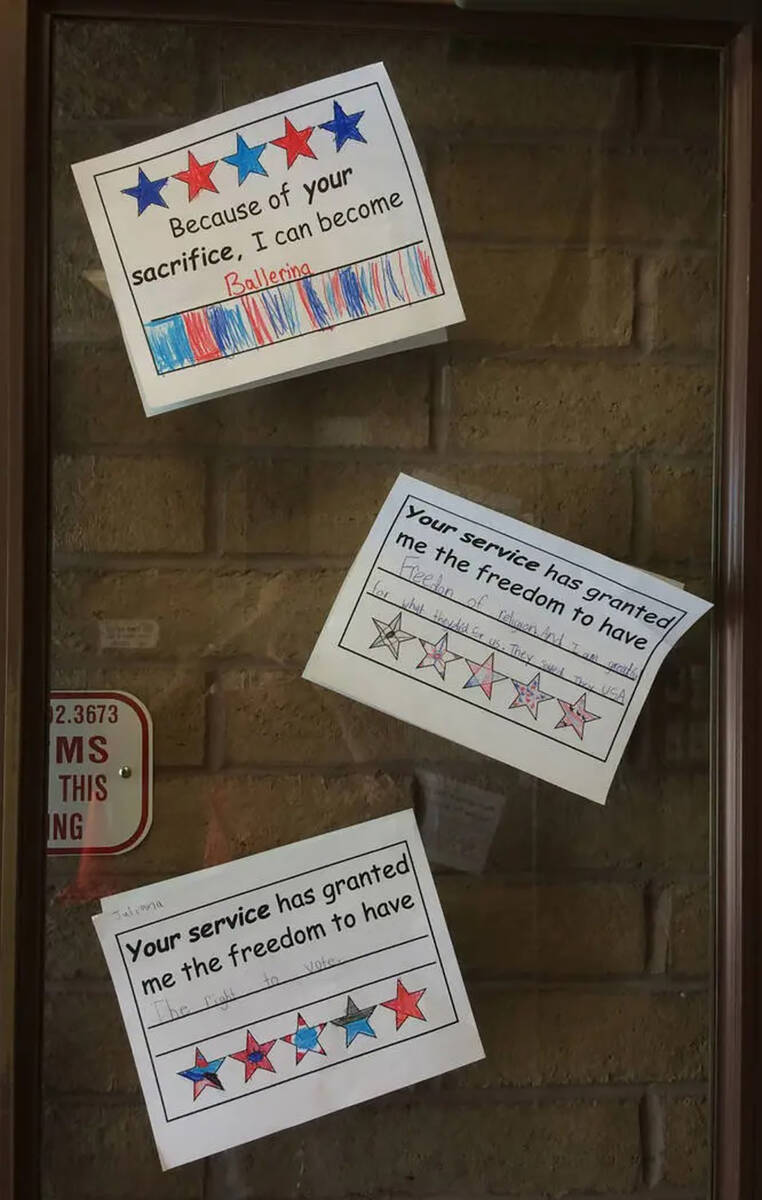 Because of your
sacrifice, I can become
Ballerina
Your service has granted
me the freedom to have
Freedon of religion And I am greatful
for what they did for us. They saved They USA
02.3673
MS
THIS
ING
Julianna
Your service has granted
me the freedom to have
The right to vote.